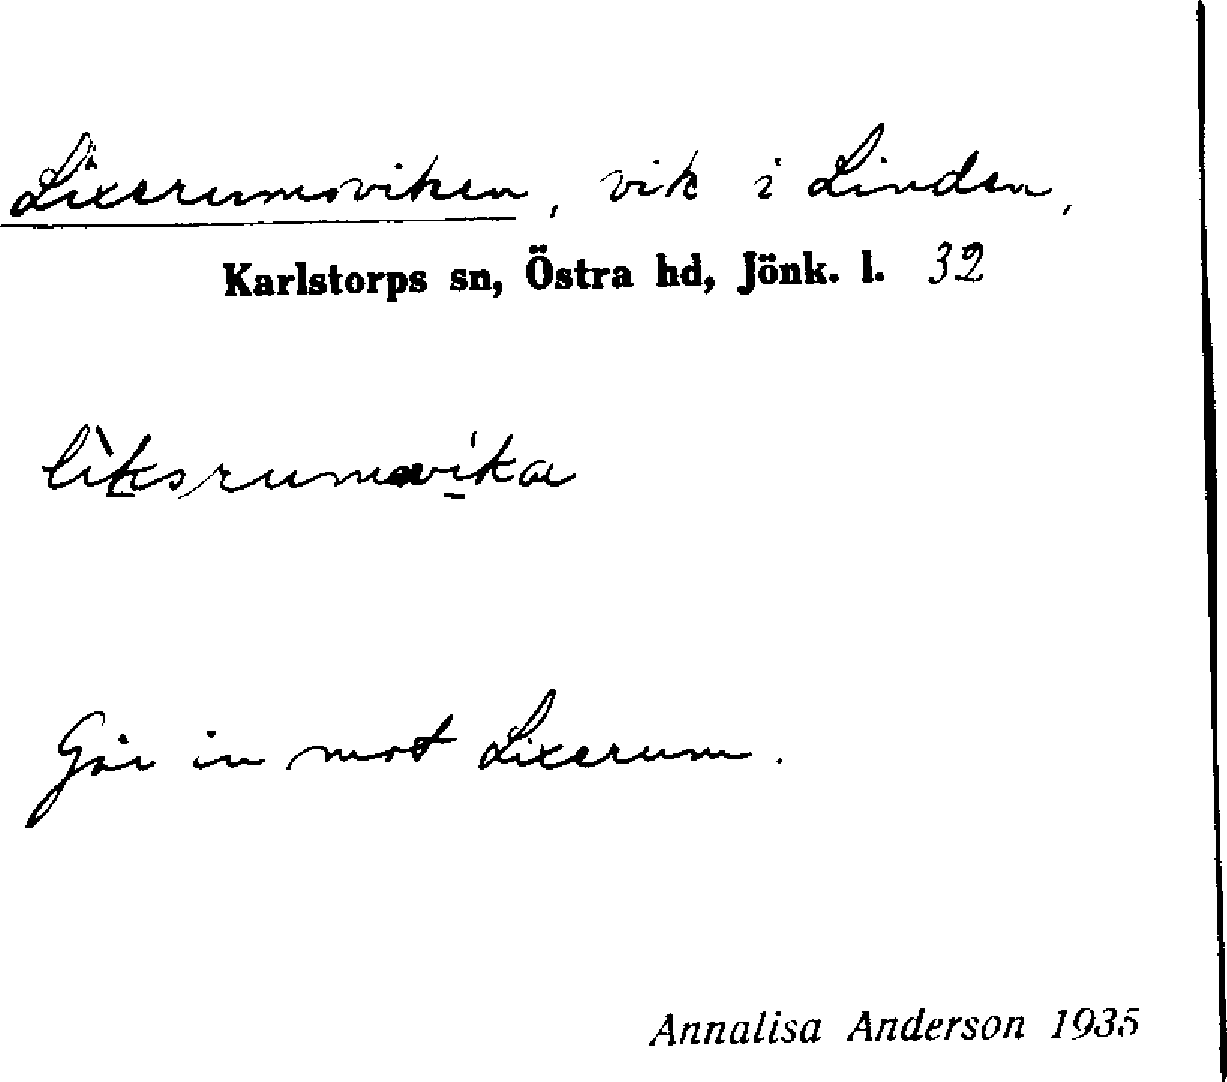 Lixerumsviken, vik i Linden,
Karlstorps sn, Östra hd, Jönk. l. 32
lìksrumsvíka
Går in mot Lixerum.
Annalisa Anderson 1935